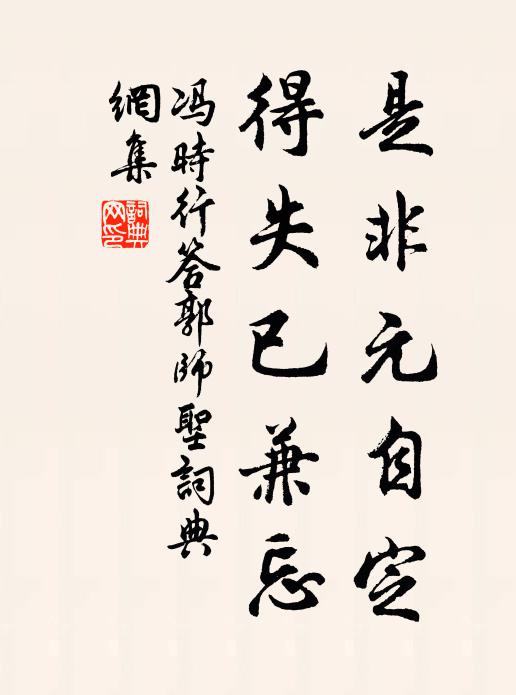 是非元自定
得失已兼忘
冯時行答郭師聖詞典
網集
詞典网印